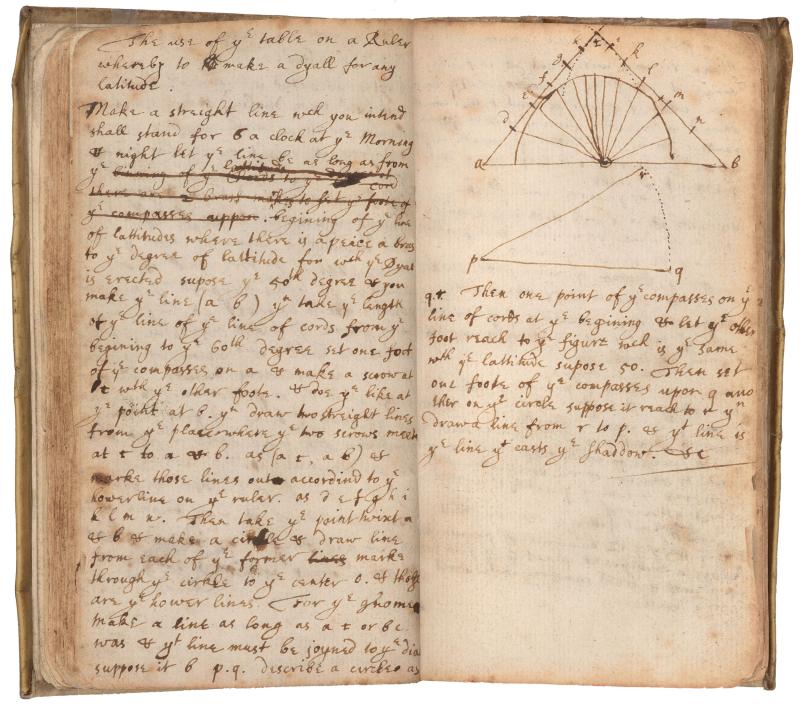 The use of yᵉ table on a Ruler
whereby to make a dyall for any
latitude.
Make a streight line wch you intend
shall stand for 6 a clock at yᵉ Morning
& night let yᵉ line be as long as from
yᵉ bining of yᵉ to yᵉ
there are 2 brass to set yᵉ foote of
yᵉ compasses uppon. begining of yᵉ line
of lattitudes where there is a peice a brass
to yᵉ degree of lattitude for wch yᵉ Dyal
is erected supose yᵉ 50th degree & you
make yᵉ line (a b) yⁿ take yᵉ length
of yᵉ line of yᵉ line of cords from yᵉ
begining to yᵉ 60th degree set one foot
of yᵉ compasses on a & make a scrow at
c wth yᵉ other foote. & doe yᵉ like at
yᵉ point at b. yⁿ draw two streight lines
from yᵉ place where yᵉ two scrows meete
at c to a & b. as (a c, a b) &
marke those lines out accordind to yᵉ
howerline on yᵉ ruler. as d e f g h i
k l m n. Then take yᵉ point twixt a
& b & make a circle & draw line
from each of yᵉ former lines marke
through yᵉ circkle to yᵉ center o. & those
are yᵉ hower lines. For yᵉ ghomon
make a line as long as a c or b c
was & yᵗ line must be joyned to yᵉ dia
suppose it b p. q. describe a circkle as
d
e
f
g
k
l
m
n
a
b
r
p
q
q.r. Then one point of yᵉ compasses on yᵉ
line of cords at yᵉ begining & let yᵉ other
foot reach to yᵉ figure wch is yᵉ same
wth yᵉ lattitude supose 50. Then set
one foote of yᵉ compasses upon q ano
ther on yᵉ circle suppose it reach to r yⁿ
draw a line from r to p. & yᵗ line is
yᵉ line yᵗ casts yᵉ shaddow. &c